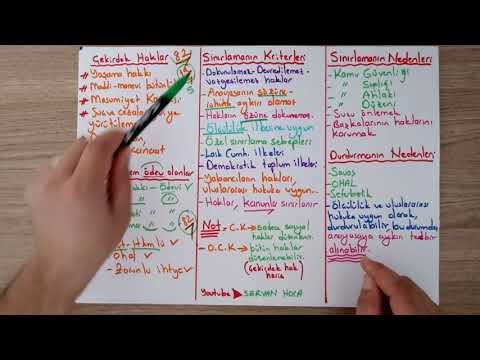 Çekirdek Haklar 82
* Yaşama hakkı
* Maddi-manevi bütünlük
* Masumiyet
* Suç ve cezaların
yürütülemez
ödev olanlar
82
Ohal ✓
Zorunlu ihtiyaç ✓
Sınırlamanın Kriterleri
- Dokunulamaz-Devredilemez-
vazgeçilemez haklar
- Anayasanın sözüne
ruhuna aykırı olamaz
- Hakların özüne dokunamaz.
- Ölçülülük ilkesine uygun
- Özel sınırlama sebepleri
- Laik Cumh. ilkeleri
- Demokratik toplum ilkeleri
- Yabancıların hakları,
uluslararası hukuka uygun..
- Haklar, kanunla sınırlanır
Not - C.K → sadece sosyal
haklar düzenlenir.
- O.C.K → bütün haklar
düzenlenebilir.
(çekirdek hak
hariç
Youtube ▶ SERVAN HOCA
Sınırlamanın Nedenleri
- Kamu Güvenliği
" Sağlığı
" Ahlakı
" Düzeni
- Suçu önlemek
- Başkalarının haklarını
korumak
Durdurmanın Nedenleri
- Savaş
- OHAL
- Seferberlik
- Ölçülülük ve uluslararası
hukuka uygun olarak,
durdurulabilir, bu durumda
anayasaya aykırı tedbir
alınabilir.